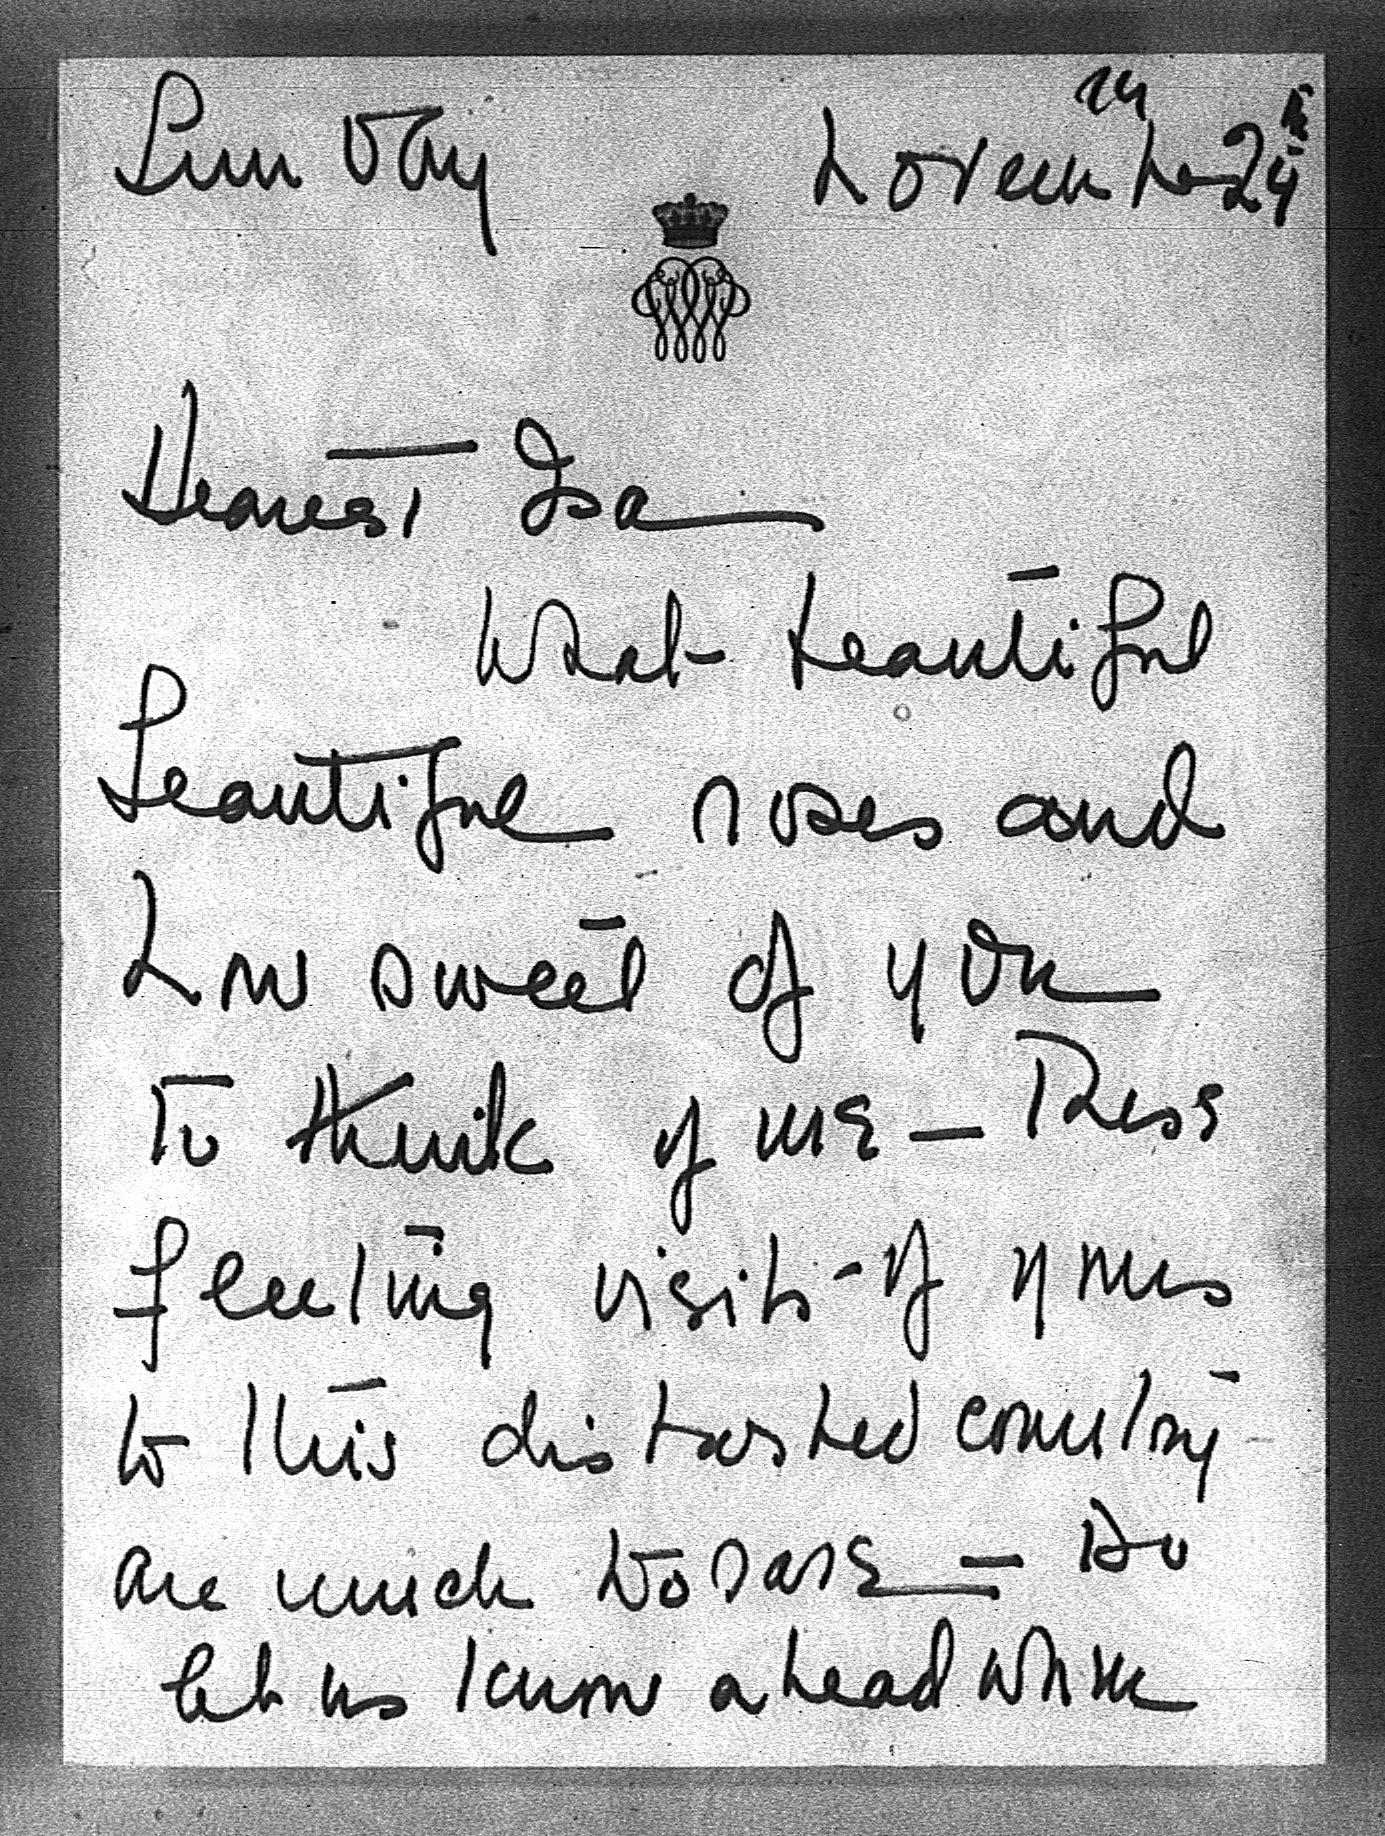 Sunday November 24th
Dearest Isa
What beautiful
beautiful roses and
how sweet of you
to think of me — These
fleeting visits of yours
to this distasted country
are much too rare — Do
let us know ahead when